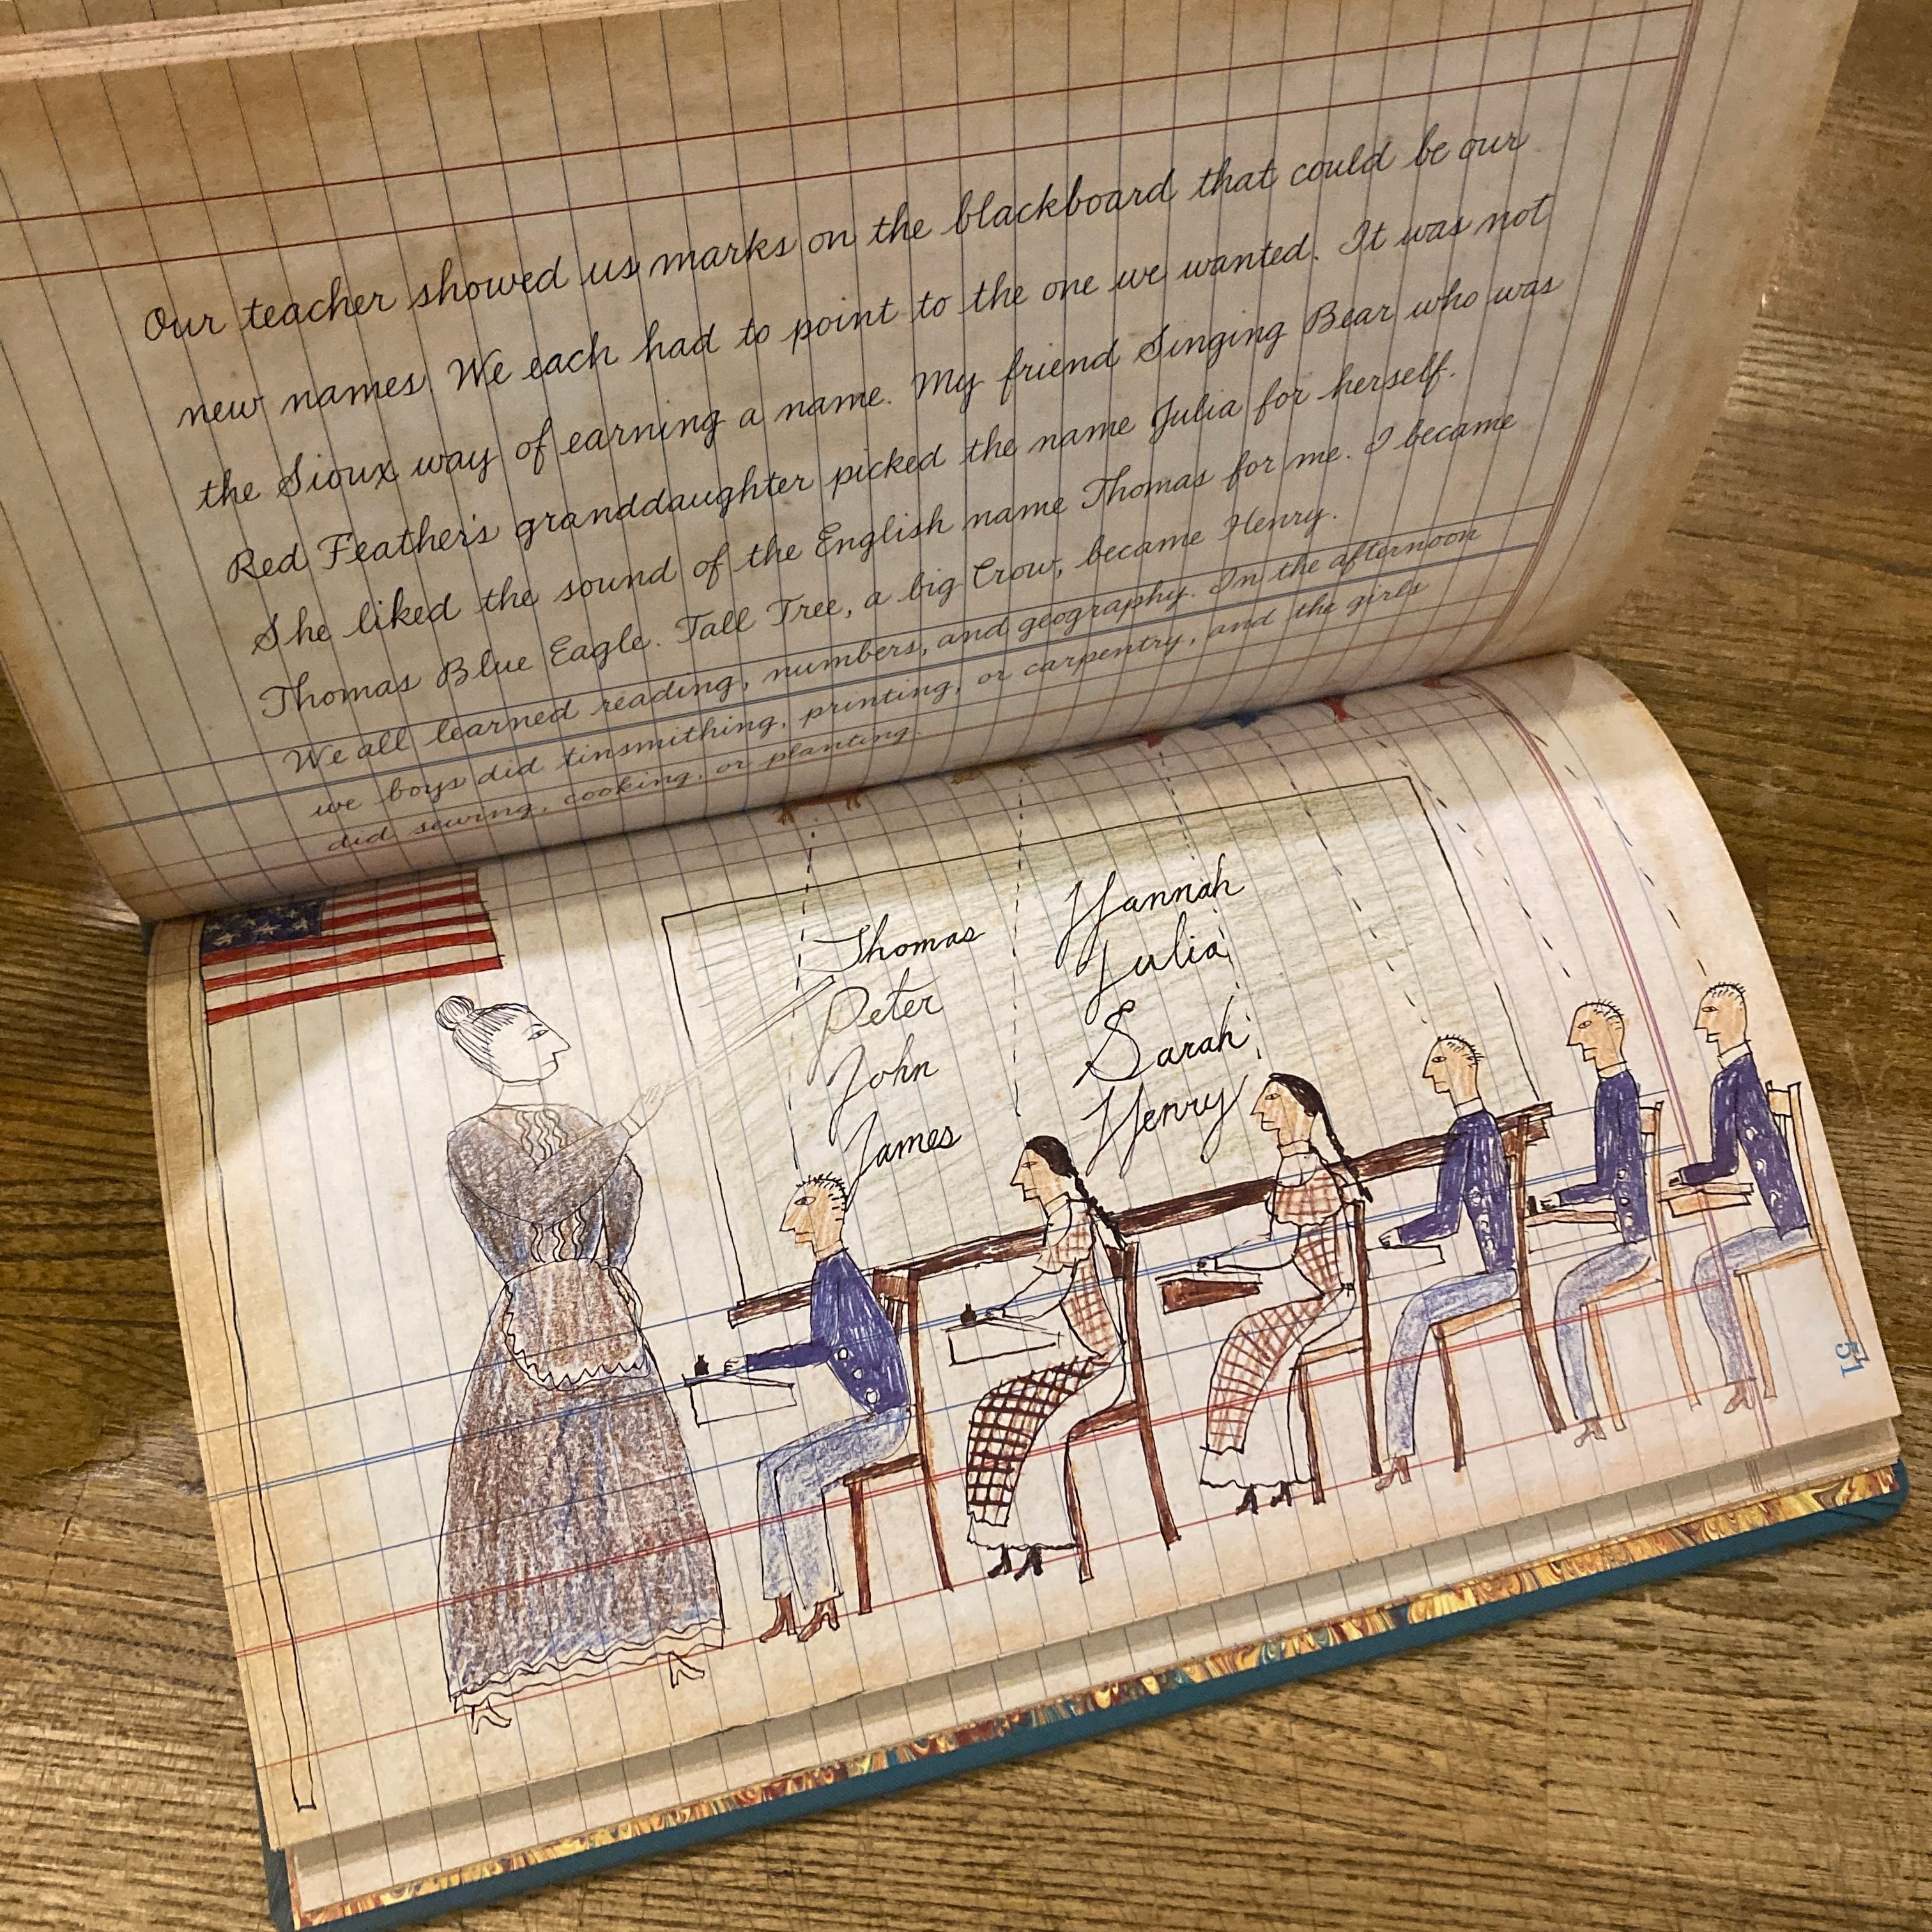 Our teacher showed us marks on the blackboard that could be our
new names. We each had to point to the one we wanted. It was not
the Sioux way of earning a name. My friend Singing Bear who was
Red Feather's granddaughter picked the name Julia for herself.
She liked the sound of the English name Thomas for me. I became
Thomas Blue Eagle. Tall Tree, a big Crow, became Henry.
We all learned reading, numbers, and geography. In the afternoon
we boys did tinsmithing, printing, or carpentry, and the girls
did sewing, cooking, or planting.
Thomas
Peter
John
James
Hannah
Julia
Sarah
Henry
51